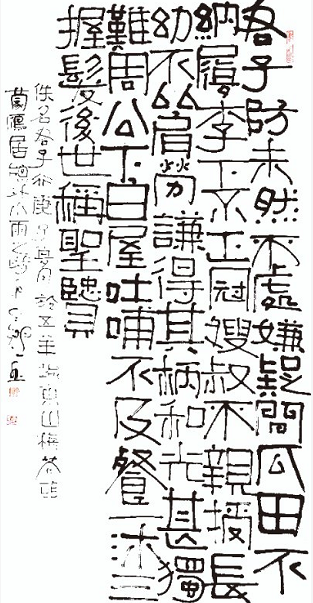 君子防未然不處嫌疑間瓜田不
納履李下不正冠嫂叔不親授長
幼不比肩勞謙得其柄和光甚獨
難周公下白屋吐哺不及餐一沐三
握髮後世稱聖賢
佚名君子行庚於五羊東山梅花
居小雨之